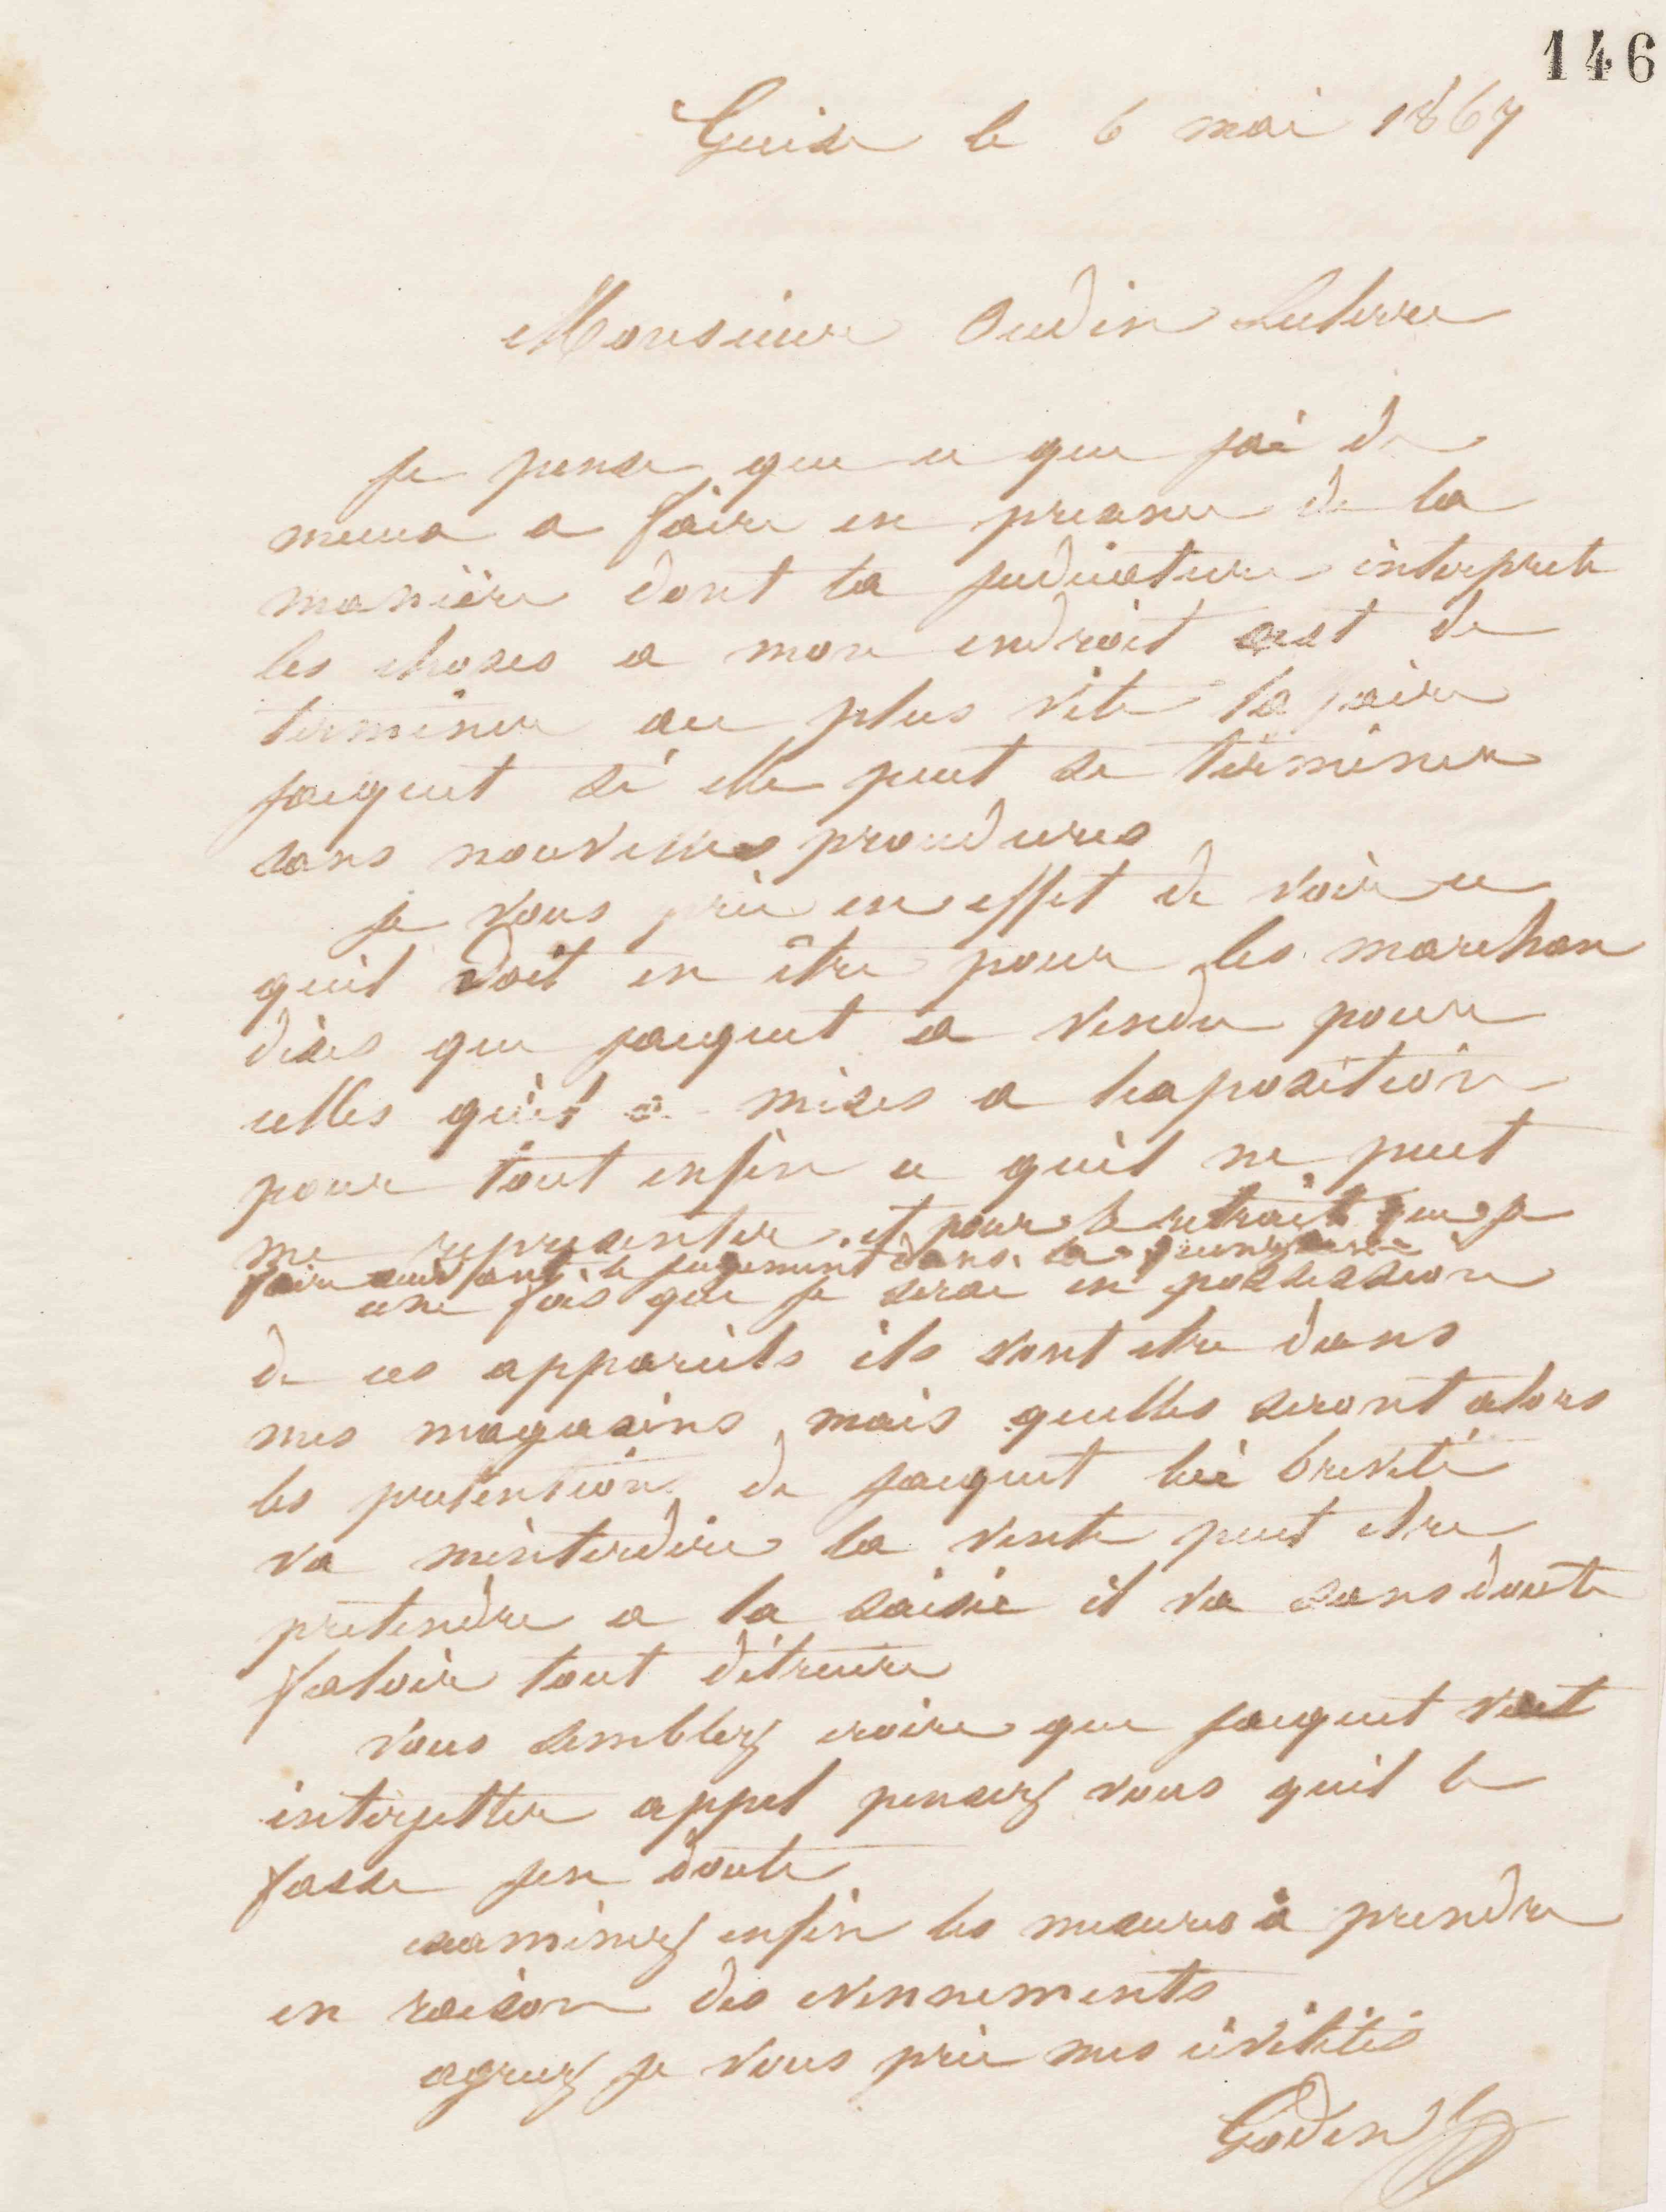 146
Guise le 6 mai 1867
Monsieur Oudin Leclerre
je pense que ce que jai de
mieux a faire en presence de la
manière dont la judicature interprete
les choses a mon endroit est de
terminer au plus vite la faire
jacquet si elle peut se terminer
sans nouvelles procedures
je vous prie en effet de voir ce
quil doit en être pour les marchan
dises que jacquet a vendu pour
celles quil a mises a lexposition
pour tout enfin ce quil ne peut
me representer et pour le retrait que je
faire suivant le jugement dans la
une fois que je serai en possession
de ces appareils ils vont etre dans
mes magasins mais quelles seront alors
les pretention de jacquet lui breveté
va minterdire la vente peut etre
pretendre a la saisie il va sans doute
faloir tout détruire
vous semblez croire que jacquet veut
interjetter appel pensez vous quil le
fasse jen doute
examinez enfin les mesures à prendre
en raison des evennements
agreez je vous prie mes civilités
Godin